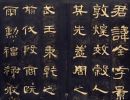 君諱全字景
敦煌效穀人
其先蓋周
武王秉乾
翦伐殷商
爾勳福祿